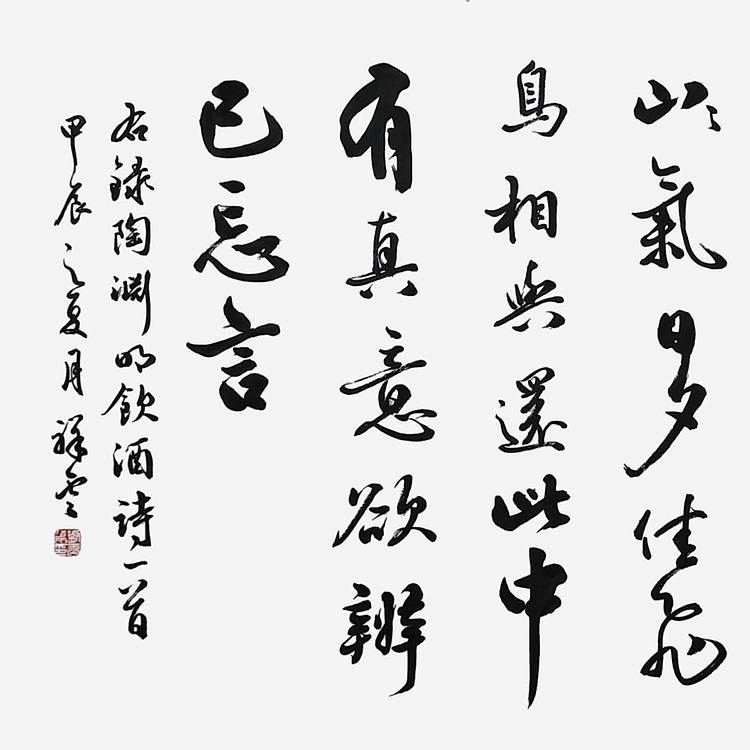 山氣日夕佳飛
鳥相與還此中
有真意欲辨
已忘言
右録陶淵明飲酒詩一首
甲辰之夏月祥雲